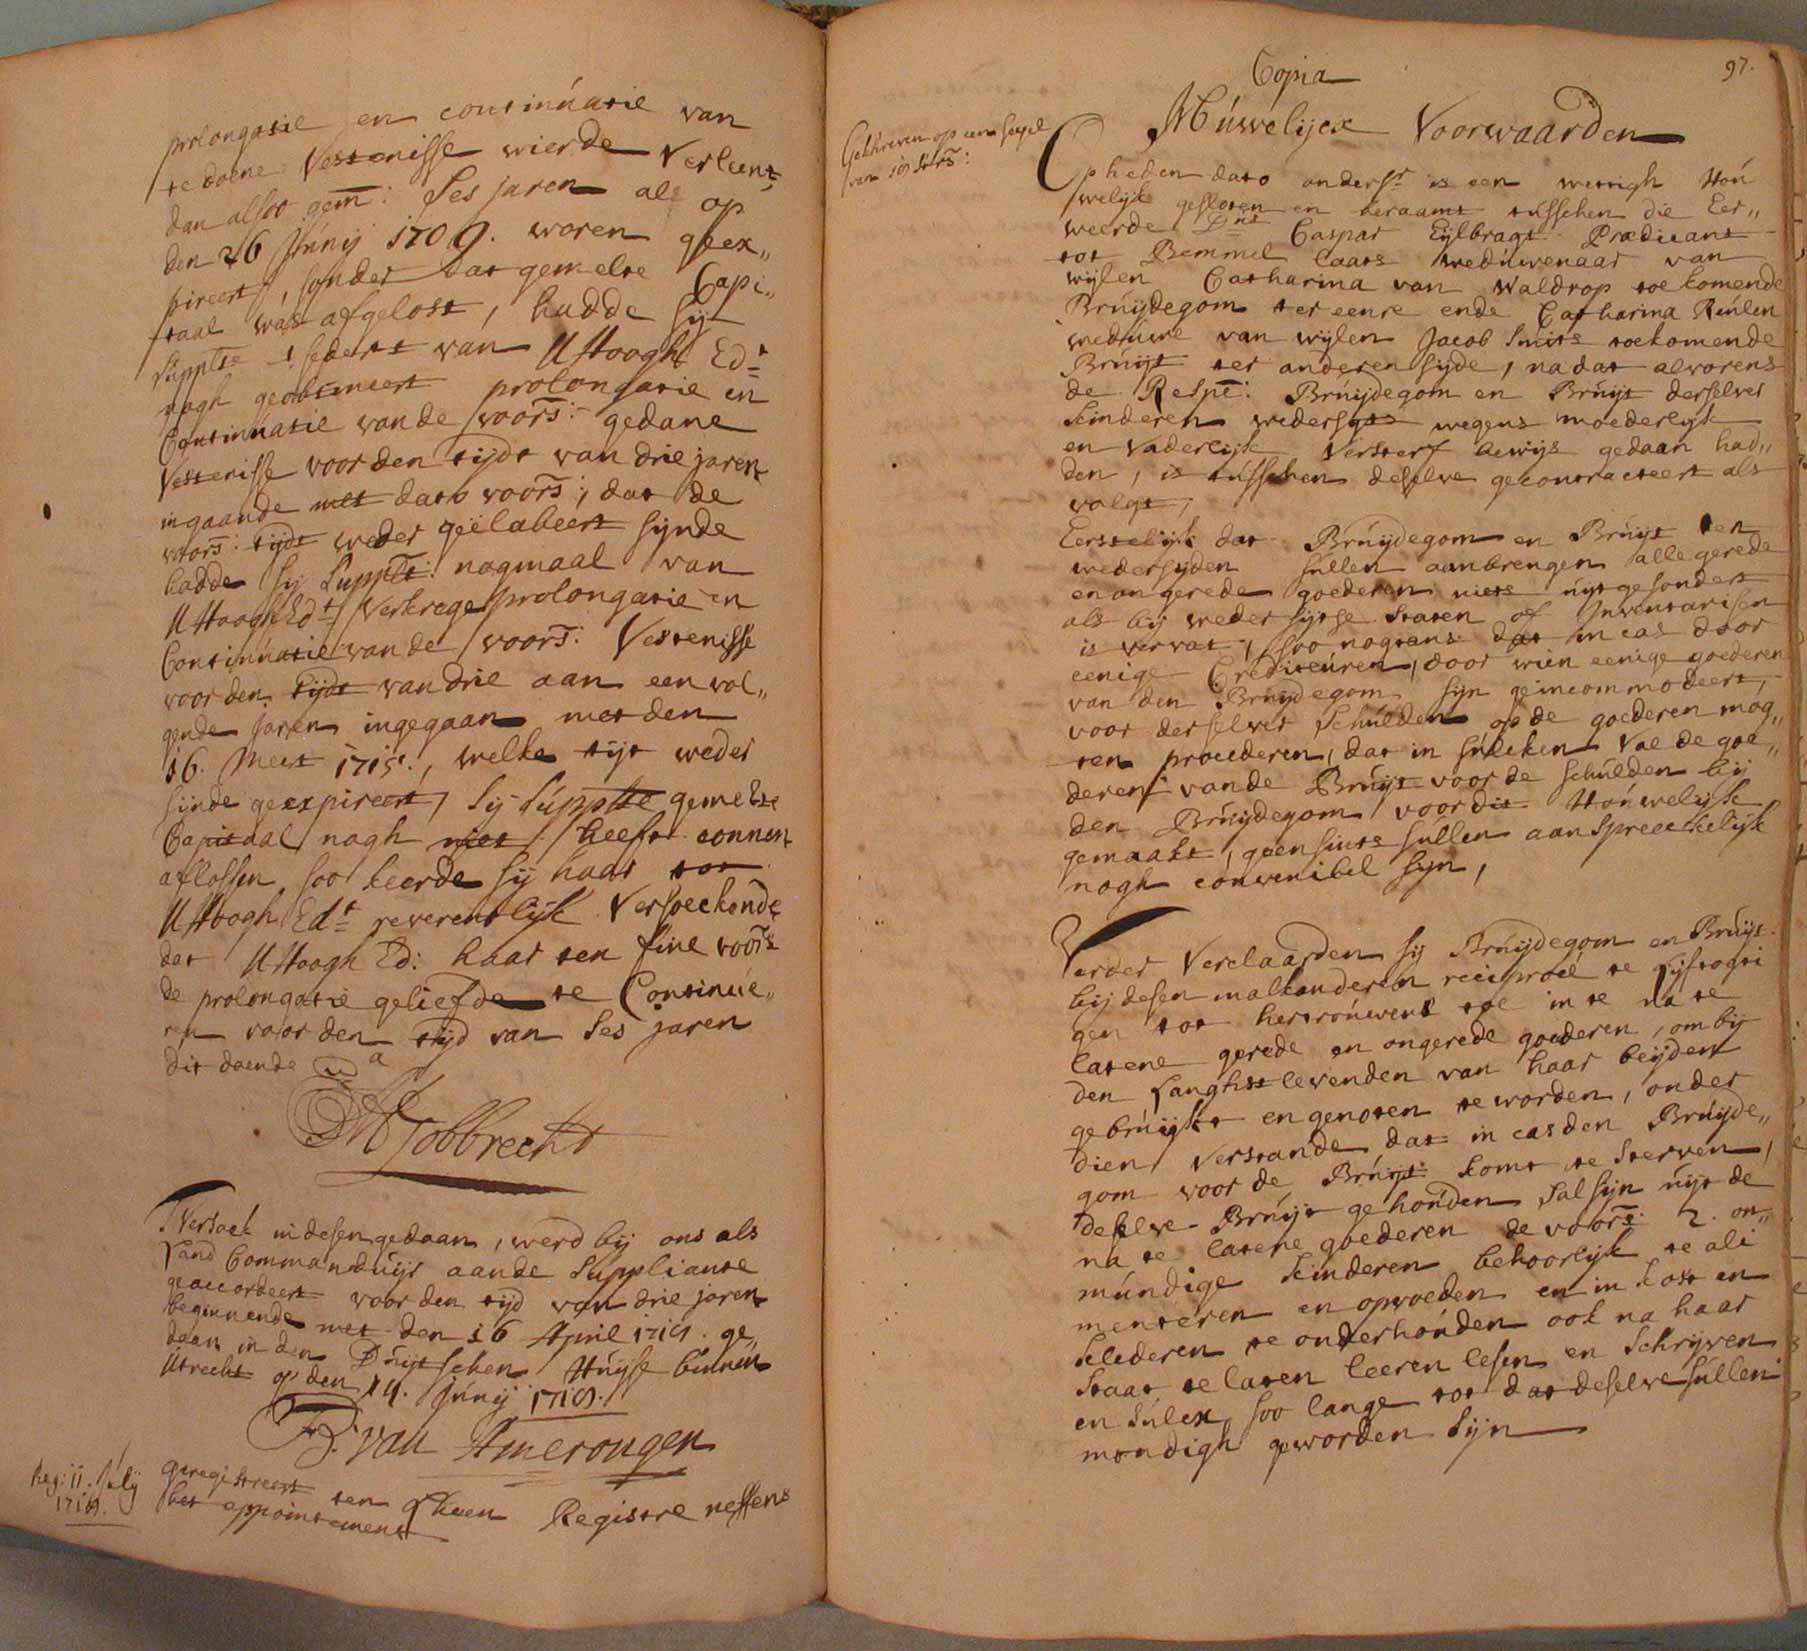 prolongatie en continuatie van
te doene Vestenisse wierde Verleent,
dan alsoo gem: Ses jaren als op
den 26 Junij 1709. waren geex„
pireert, sonder dat gemelte Capi„
taal was afgelost, hadde sij
Supplte sedert van U Hoogh Edt
nogh geobtineert prolongatie en
Continuatie van de voors: gedane
Vestenisse voor den tijdt van drie jaren
ingaande met dato voors:, dat de
voors: tijdt weder geëlabeert sijnde
hadde sij Supplte: nogmaal van
U Hoogh Edt Verkrege prolongatie en
Continuatie van de voors: Vestenisse
voor den tijdt van drie aan een vol„
gende Jaren ingegaan met den
16. Meert 1715., welke tijt weder
sijnde geexpireert, Sij Supplte gemelte
Capitaal nogh niet heeft connen
aflossen, soo keerde sij haar tot
U Hoogh Edt reverentlijk Versoeckende
dat U Hoogh Ed: haar ten fine voors
de prolongatie geliefde te Continue„
ren voor den tijd van Ses jaren
dit doende
Gobbrecht
TVersoek in desen gedaan, werd bij ons als
Land Commanduijr aande Suppliante
geaccordeert voor den tijd van drie jaren
beginnende met den 16 April 1719. ge„
daan in den Duijtschen Huijse binnen
Utrecht op den 14. Junij 1719.
van Amerongen
Reg: 11. July
1719.
geregistreert ten Registre neffens
het appointement
97.
Copia
Geschreven op een segel
van 10 stvrs:
Húwelijcx Voorwaarden
Op heden dato onderst is een wettigh Hou
welijk gesloten en beraamt tusschen die Eer„
weerde Dns Caspar Eijlbragt Prædicant
tot Bemmel laats weduwenaar van
wijlen Catharina van Waldrop toekomende
Bruijdegom ter eenre ende Catharina Reulen
weduwe van wijlen Jacob Smits toekomende
Bruijt ter anderen sijde, na dat alvorens
de Respe: Bruijdegom en Bruijt derselver
kinderen wedersyts wegens moederlyk
en Vaderlijk Versterf bewijs gedaan had„
den, is tusschen deselve gecontracteert als
volgt,
Eerstelijk dat Bruijdegom en Bruijt ten
wedersijden sullen aanbrengen alle gerede
en ongerede goederen niets uijtgesondert
als bij weder sijtse Staten of Inventarisen
is vervat, soo nogtans dat in cas door
eenige Crediteuren, door wien eenige goederen
van den Bruijdegom sijn geincommodeert,
voor derselver Schulden op de goederen mog„
ten procederen, dat in sulcken Val de goe„
deren van de Bruijt voor de schulden bij
den Bruijdegom voor dit Houwelijk
gemaakt, geensints sullen aanspreeckelijk
nogh convenibel sijn,
Verder Verclaarden sij Bruijdegom en Bruijt
bij desen malkanderen reciprocé te Lijftogti
gen tot hertrouwens toe in te na te
latene gerede en ongerede goederen, om bij
den Langhst levenden van haar beijden
gebruijkt en genoten te worden, onder
dien Verstande dat in cas den Bruijde„
gom voor de Bruijt komt te Sterven,
deselve Bruijt gehouden sal sijn uijt de
na te latene goederen de voors: 2. on„
mundige kinderen behoorlijk te ali
menteren en opvoeden en in kost en
klederen te onderhouden ook na haar
Staat te laten leeren lesen en Schrijven
en Sulcx soo lange tot dat deselve sullen
mondigh geworden Sijn